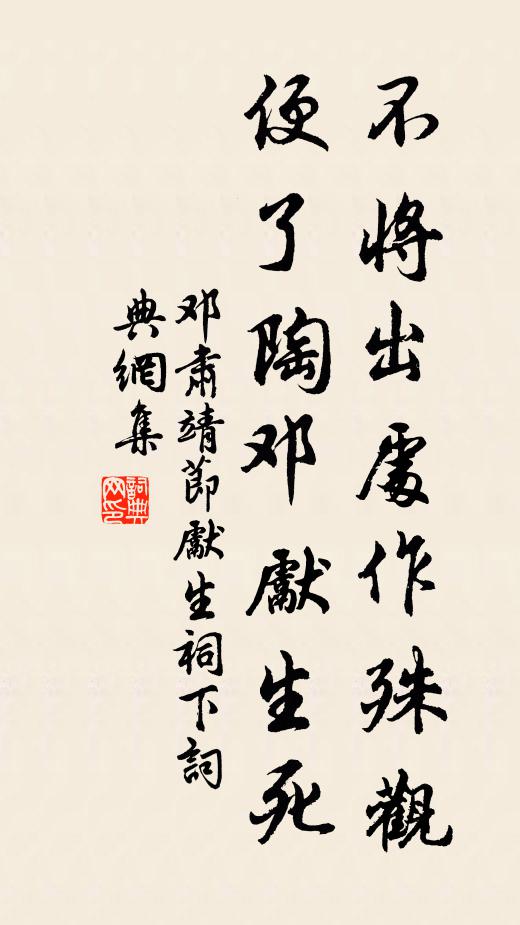 不將出處作殊觀
便了陶邓獻生死
邓肅靖節獻生祠下詞
典網集
詞典網印